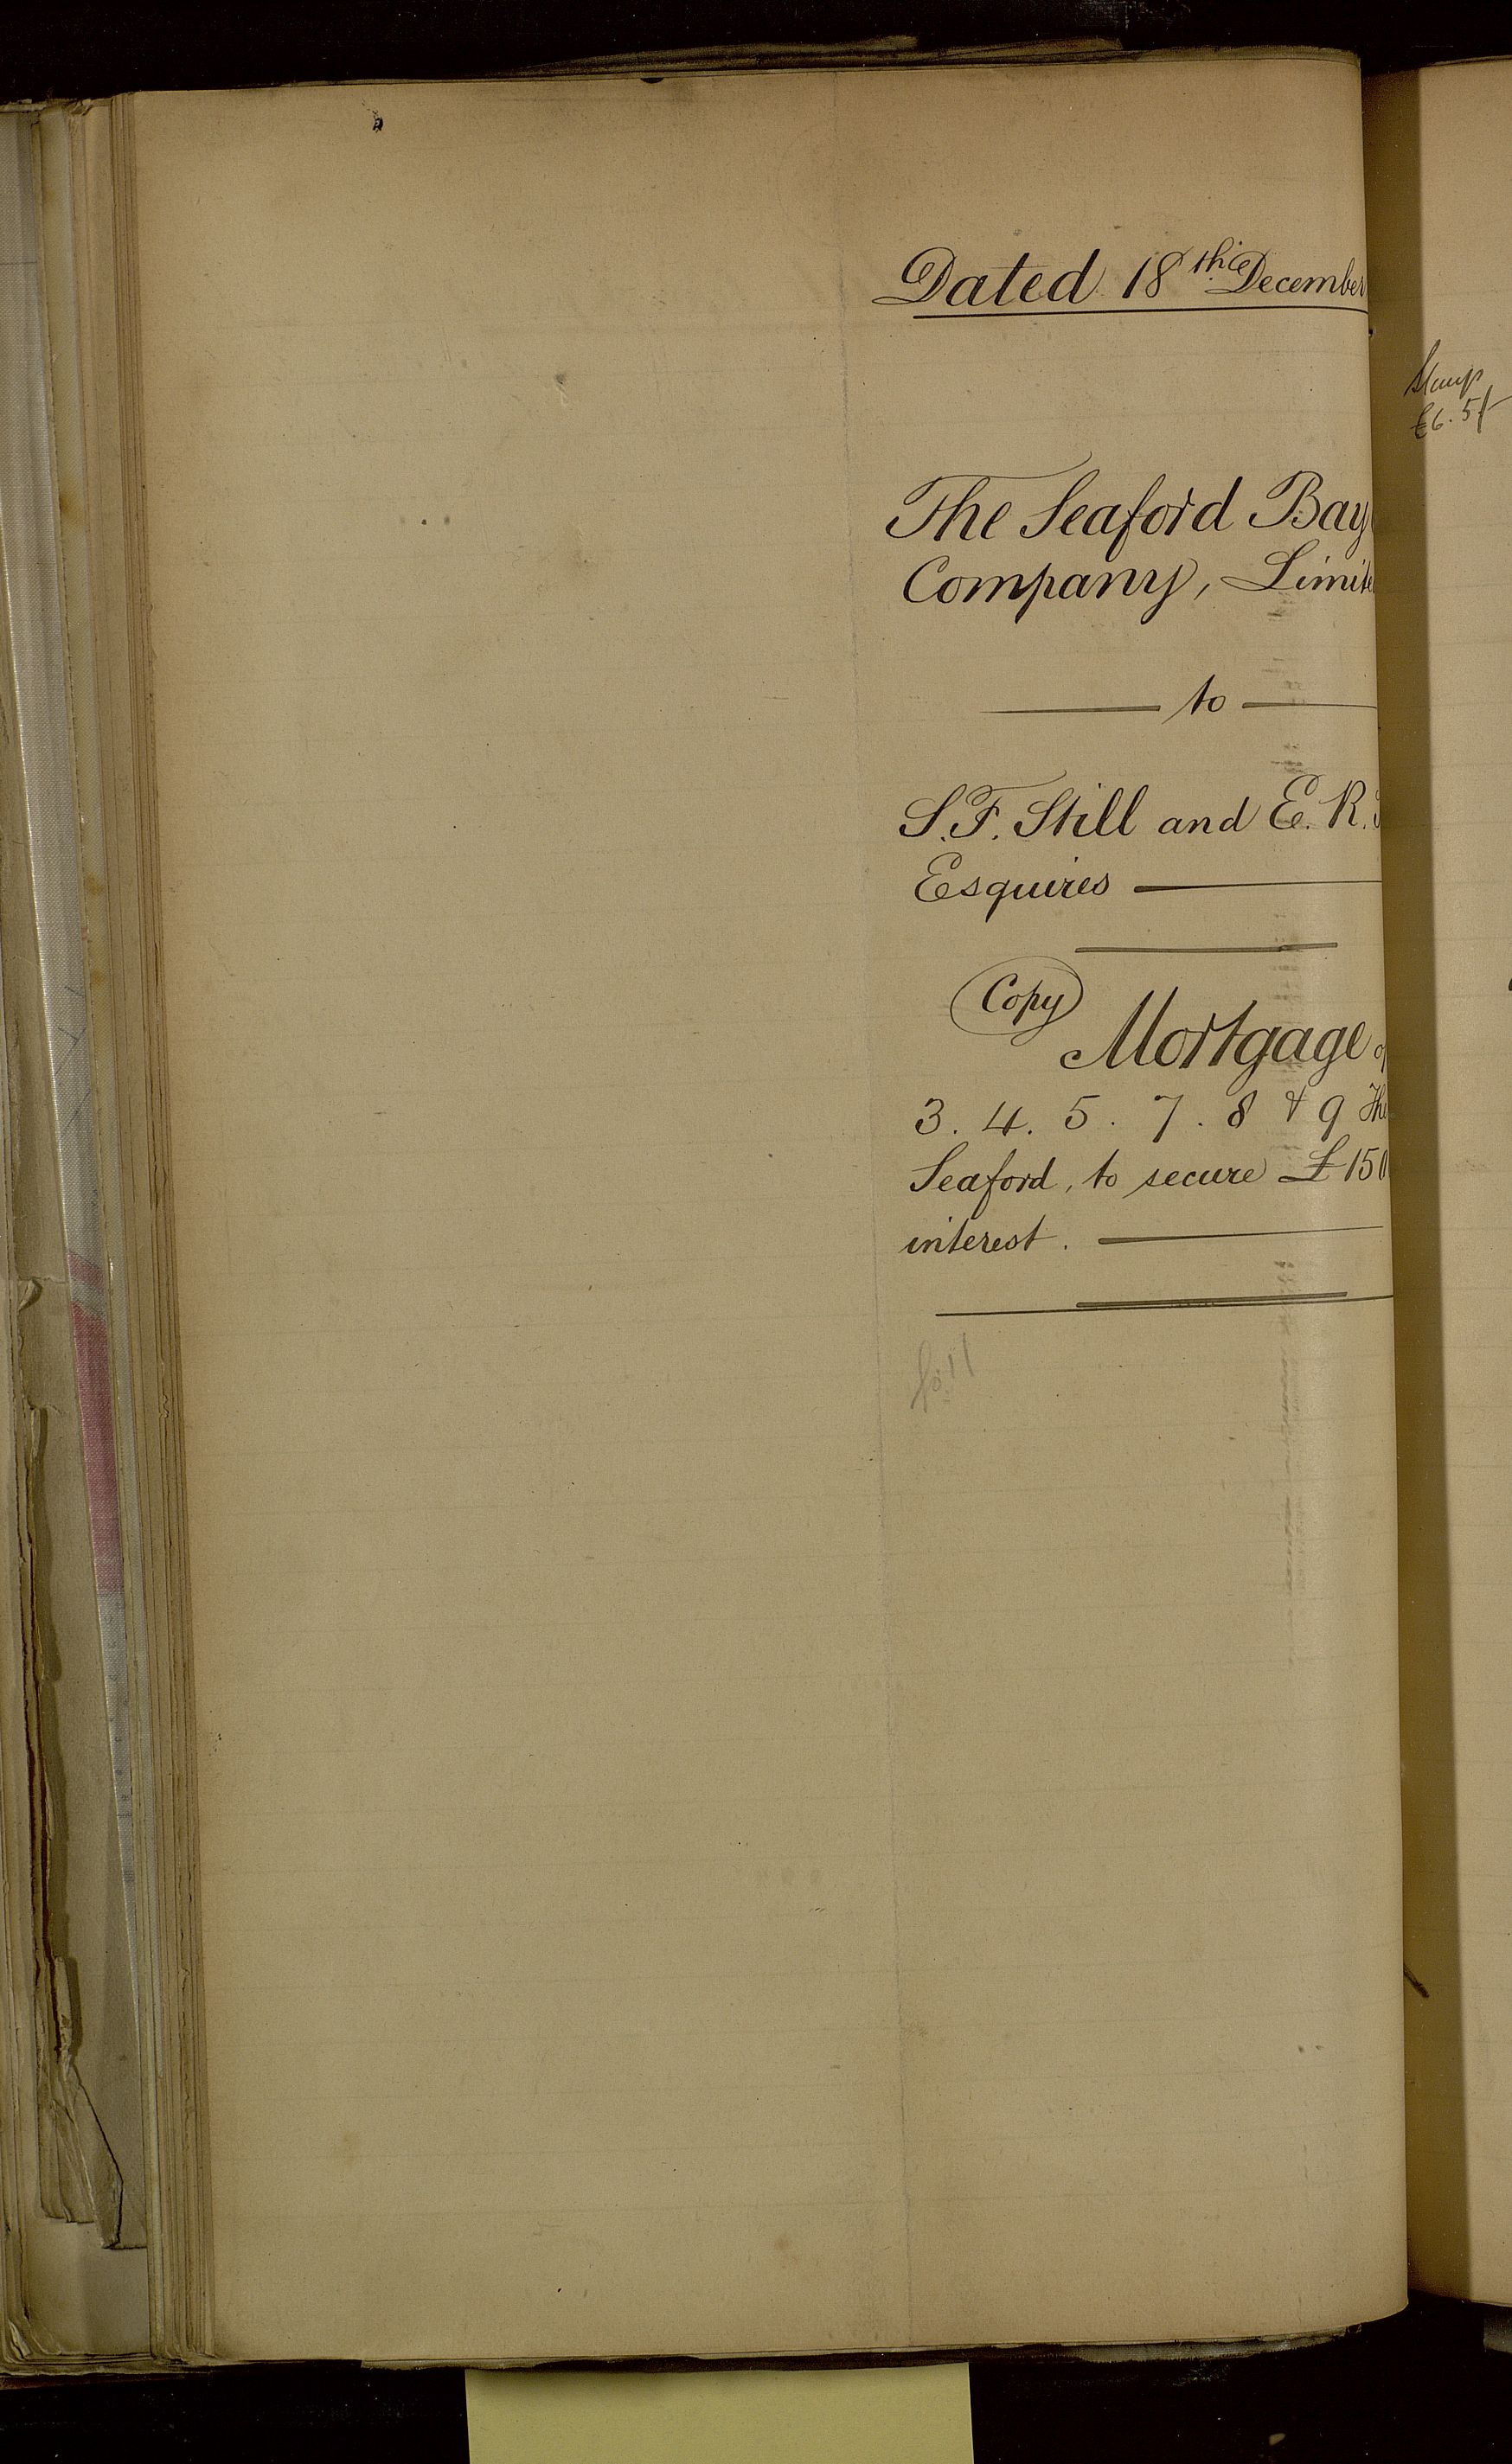 Dated 18th December
The Seaford Bay
Company, Limite
to
S. F. Still and E. R.
Esquires
Copy
Mortgage
3. 4. 5. 7. 8 & 9 The
Seaford, to secure £150
interest.
fo: 11
Stamp
£6. 5/-